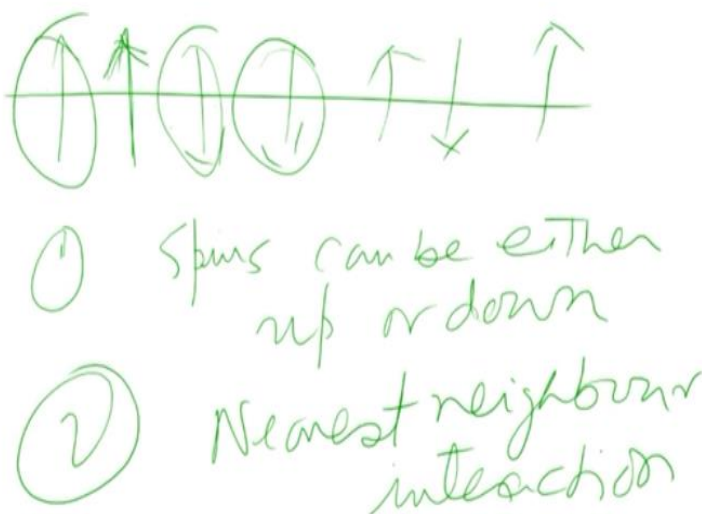 ① Spins can be either
up or down
② Nearest neighbour
interaction